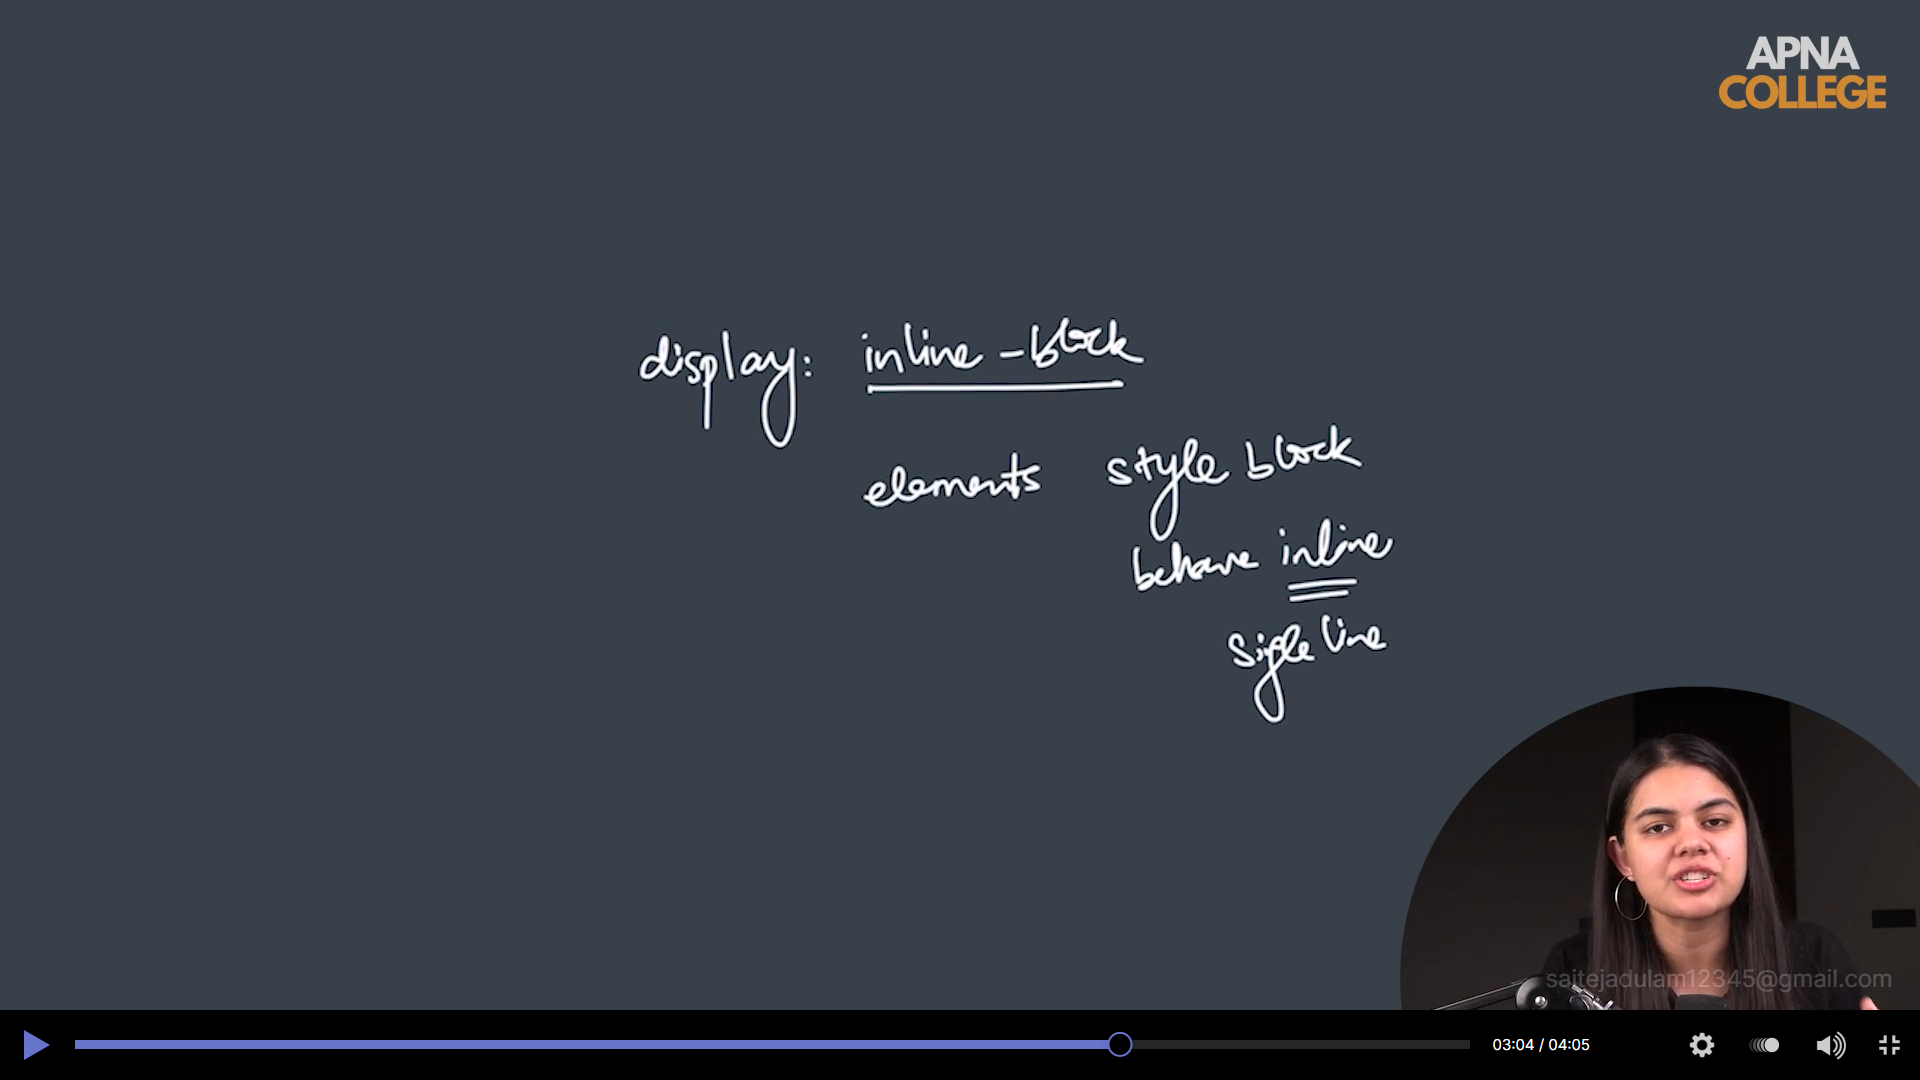 APNA
COLLEGE
display: inline-block
elements style block
behave inline
single line
saitejadulam12345@gmail.com
03:04 / 04:05